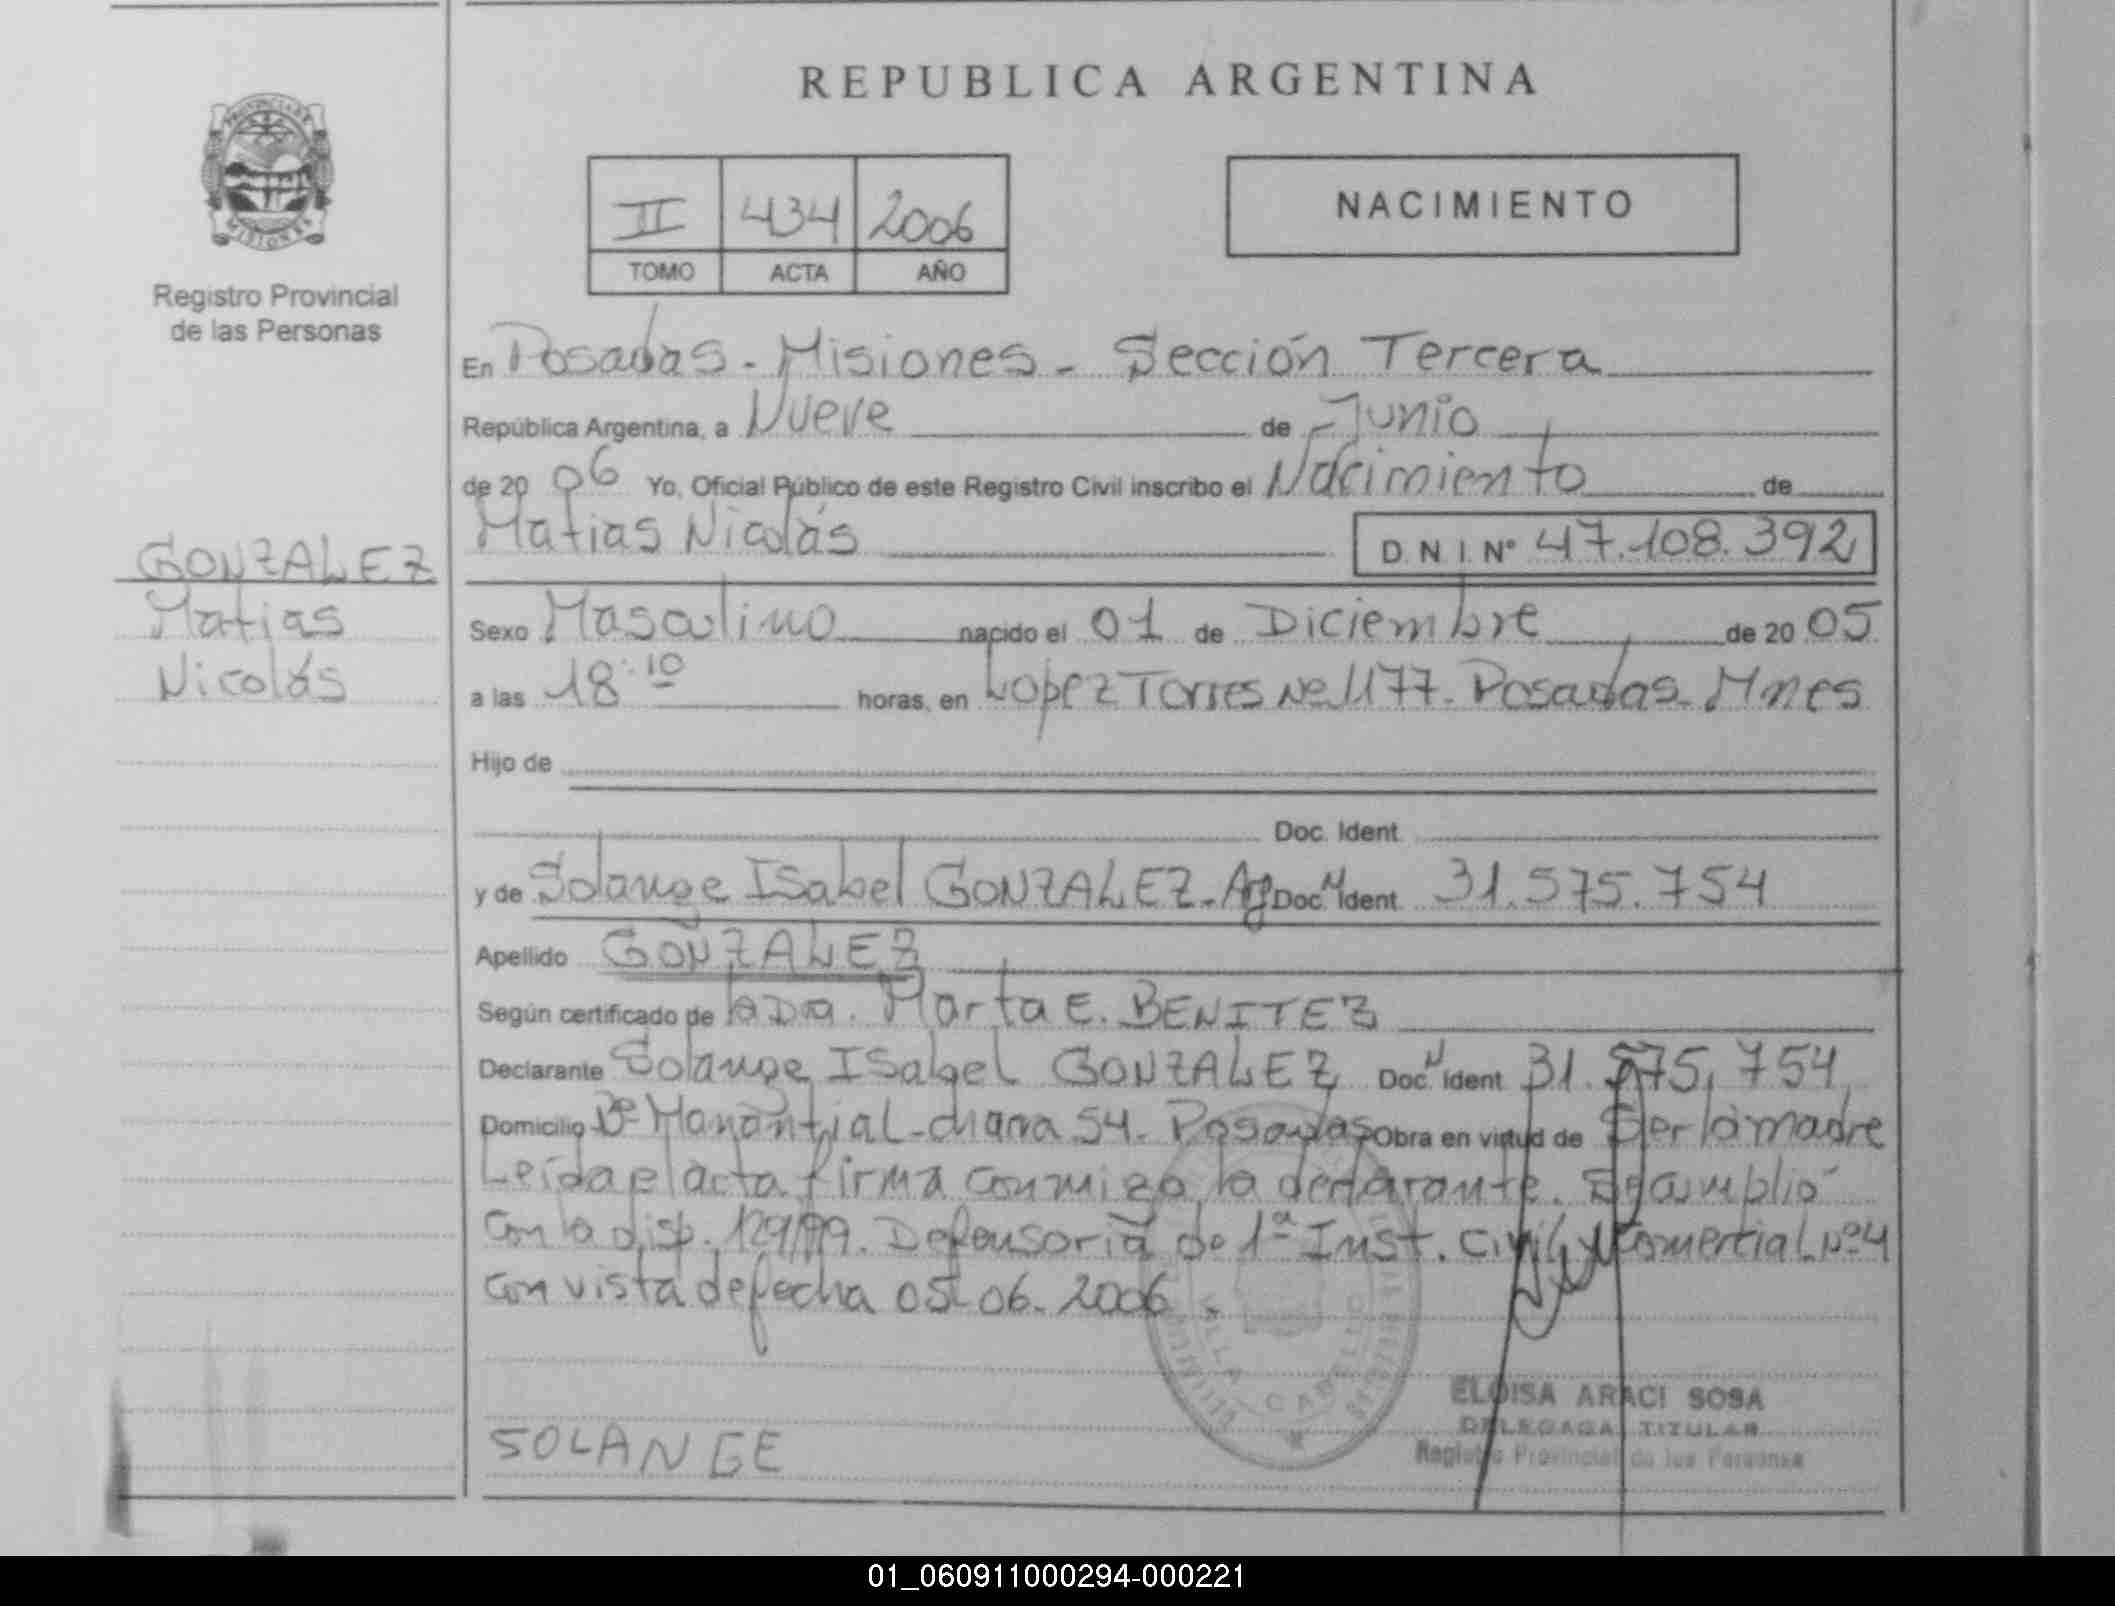 REPUBLICA ARGENTINA
PROVINCIA DE
MISIONES
Registro Provincial
de las Personas
II 434 2006
TOMO ACTA AÑO
NACIMIENTO
En Posadas - Misiones - Sección Tercera
República Argentina, a Nueve de Junio
de 20 06 Yo, Oficial Público de este Registro Civil inscribo el Nacimiento de
Matias Nicolás D.N.I. Nº 47.108.392
GONZALEZ
Matias
Nicolás
Sexo Masculino nacido el 01 de Diciembre de 20 05
a las 18:10 horas, en Lopez Torres Nº 1177. Posadas. Mnes
Hijo de
Doc. Ident.
y de Solange Isabel GONZALEZ - Arg Doc. N Ident. 31.575.754
Apellido GONZALEZ
Según certificado de la Dra. Marta E. BENITEZ
Declarante Solange Isabel GONZALEZ Doc. N Ident 31.575.754
Domicilio Bº Manantial - chacra 54. Posadas Obra en virtud de Ser la madre
Leída el acta firma conmigo la declarante. Se cumplió
con la disp. 129/99. Defensoria de 1ª Inst. Civil y Comercial Nº 4
con vista de fecha 05-06-2006.
VILLA CABELLO
SOLANGE
ELOISA ARACI SOSA
DELEGADA TITULAR
Registro Provincial de las Personas
01_060911000294-000221